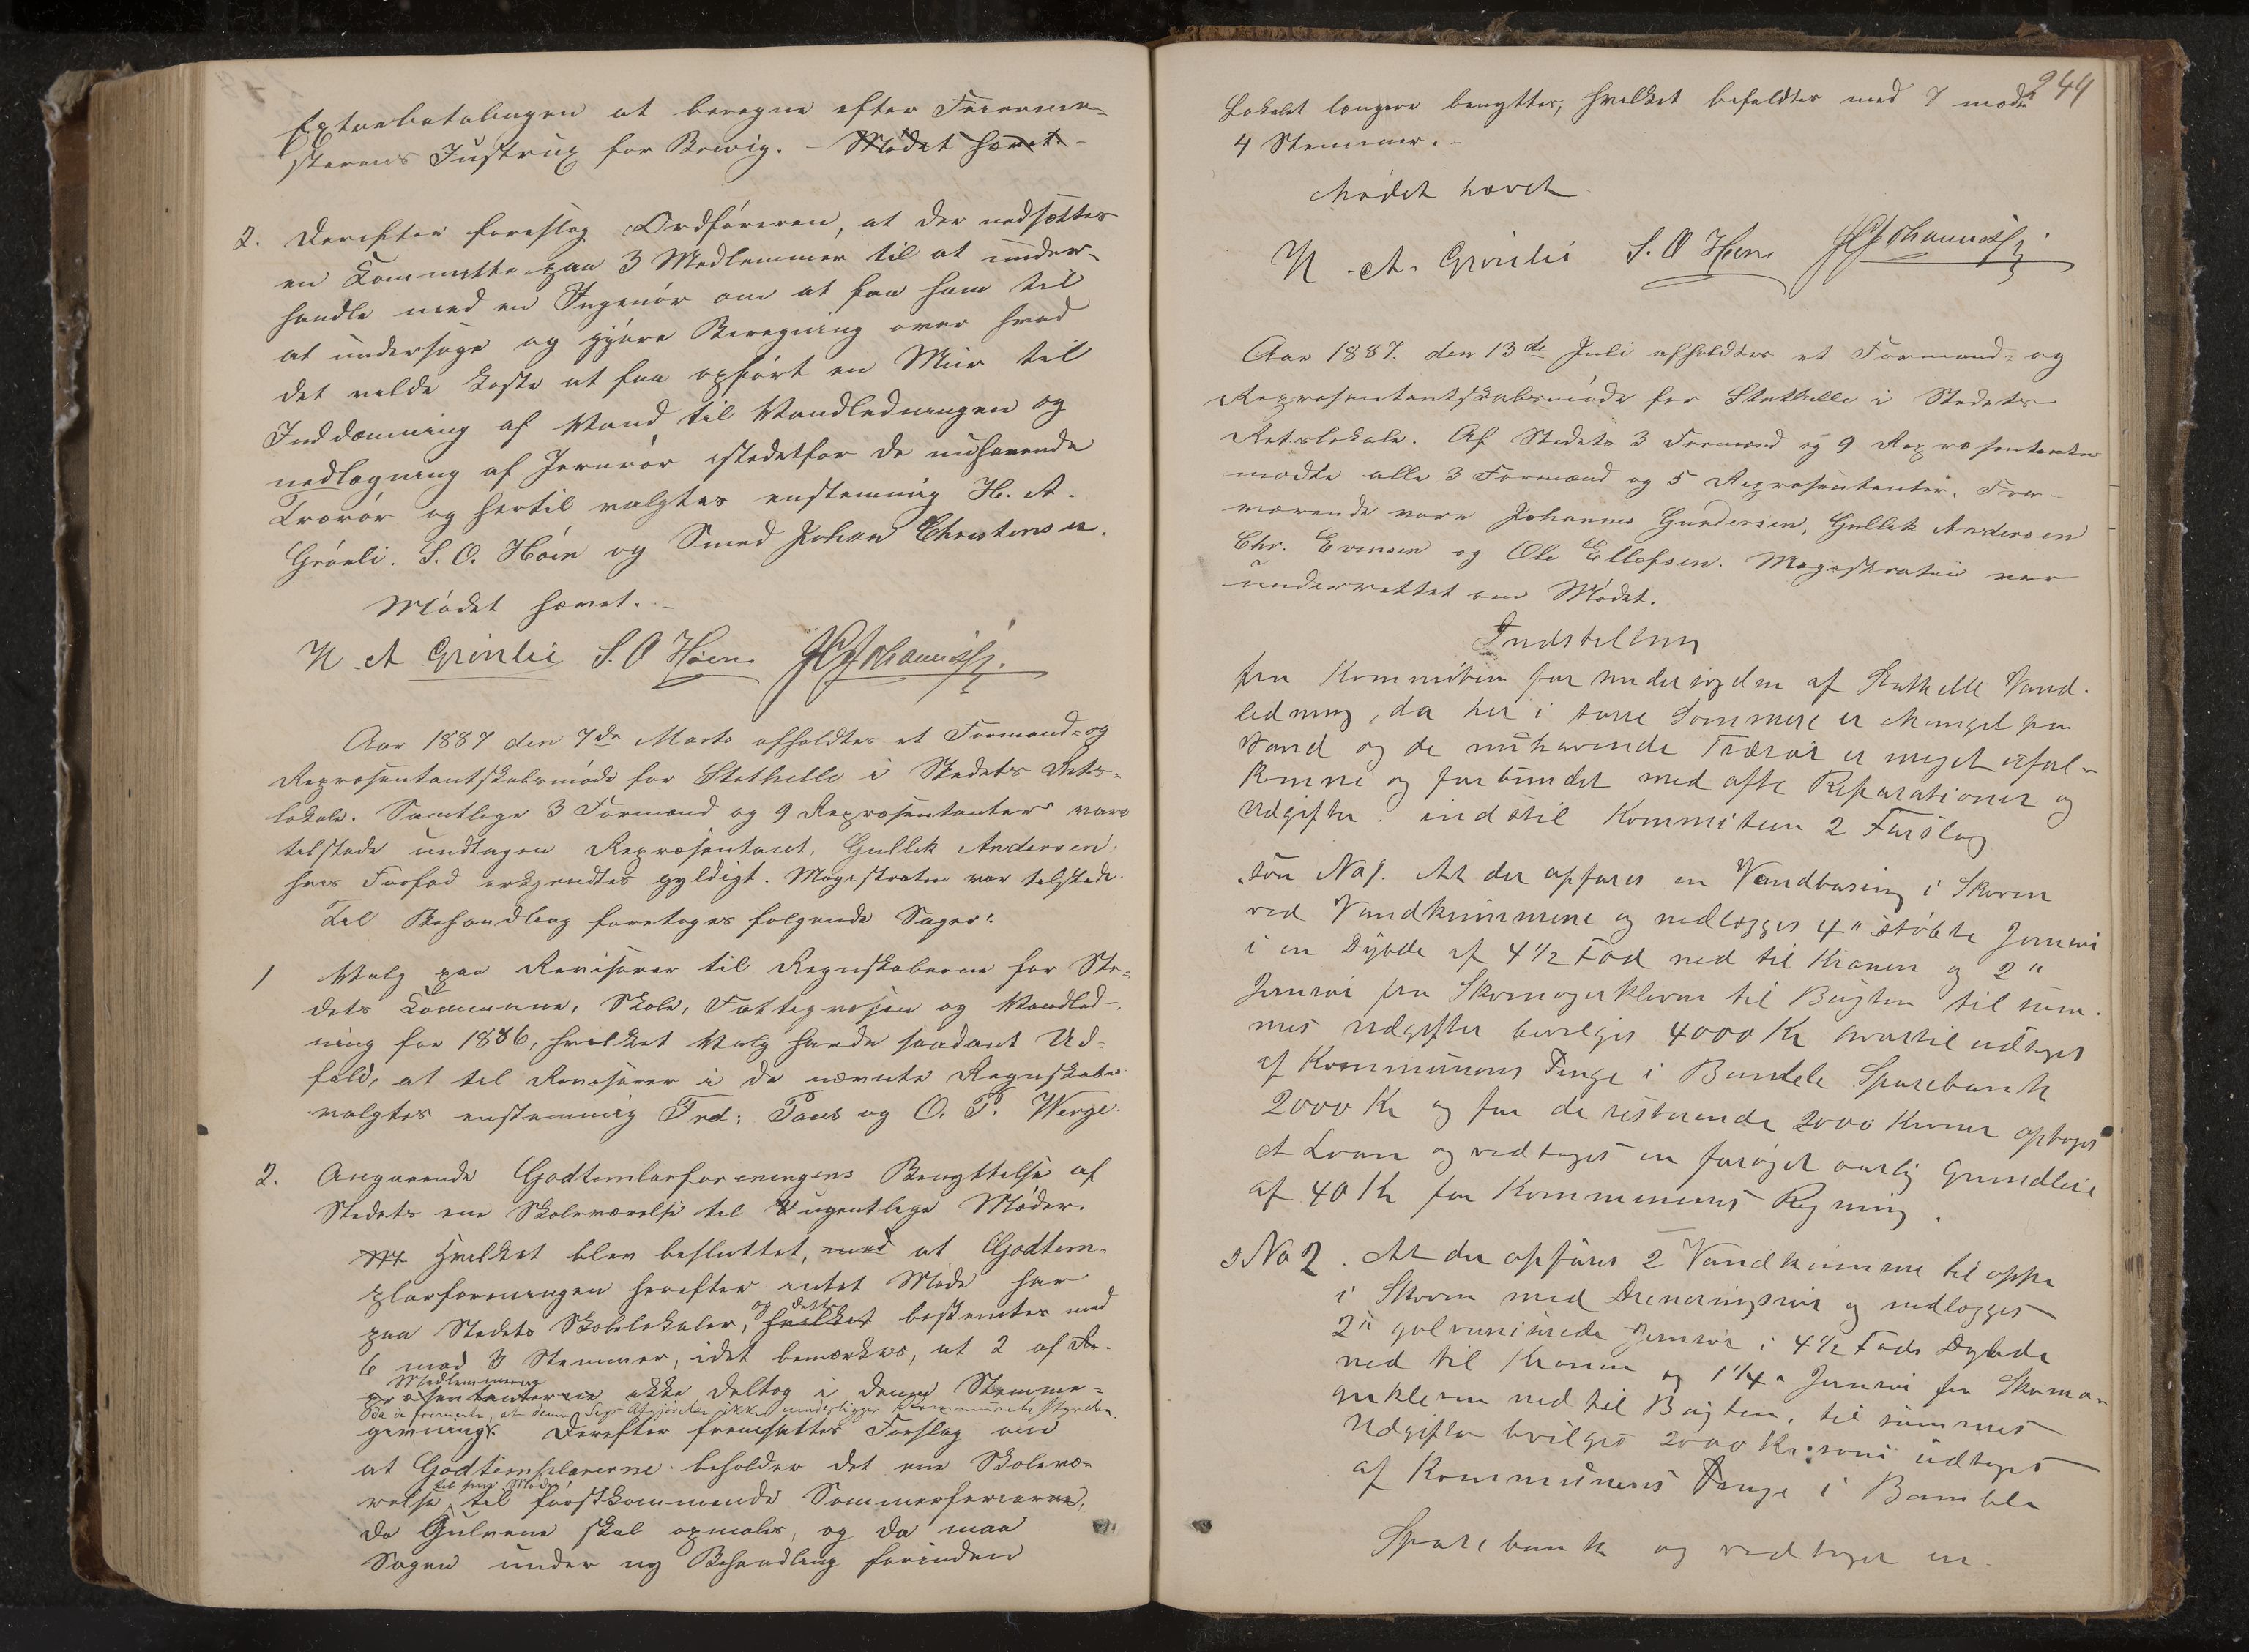 Extrabetalingen at beregne efter Feierme-
sterens Justrup for Brevig. – Mødet hævet –
2. Derefter foreslog Ordføreren, at der nedsættes
en Kommitte paa 3 Medlemmer til at under-
handle med en Ingeniør om at faa ham til
at undersøge og gjøre Beregning over hvad
det vilde koste at faa opført en Mur til
Inddæmning af Vand til Vandledningen og
nedlægning af Jernrør istedetfor de nuhavende
Trærør og hertil valgtes enstemmig H. A.
Grönli. S. O. Höen og Smed Johan Christensen.
Mødet hævet. –
N. A Grönlie S. O Höen
Aar 1887 den 7de Marts afholdtes et Formand- og
Repræsentantskabsmøde for Stathelle i Stedets Rets-
lokale. Samtlige 3 Formænd og 9 Repræsentanter vare
tilstede undtagen Repræsentant, Gullik Andersen,
hvis Forfald erkjendtes gyldigt. Magistraten var tilstede.
Til Behandling foretoges følgende Sager:
1 Valg paa Revisorer til Regnskaberne for Ste-
dets Kommune, Skole, Fattigvæsen og Vandled-
ning for 1886, hvilket Valg havde saadant Ud-
fald, at til Revisorer i de nævnte Regnskaber
valgtes enstemmig Frd: Paus og O. P. Werge.
2. Angaaende Godtemlarforeningens Benyttelse af
Stedets ene Skoleværelse til ugentlige Møder.
Hvilket blev besluttet, med at Godtem-
plarforeningen herefter intet Møde har
og dette
paa Stedets Skolelokaler, hvilket bestemtes med
6 mod 3 Stemmer, idet bemærkes, at 2 af Re-
Medlemmerne
præsentanterne ikke deltog i denne Stemme-
da de formente, at denne Sags Afgjørelse ikke underligger Kommunebestyrelsen.
givning. Derefter fremsattes Forslag om
at Godtemplarerne beholder det ene Skolevæ-
til sine Møder
relse til førstkommende Sommerferierne,
da Gulvene skal opmales, og da maa
Sagen under ny Behandling forinden
244
Lokalet længere benyttes, hvilket befaldtes med 7 mod
4 Stemmer. –
Mødet hævet
N. A. Grönlie S. O Höen
Aar 1887. den 13de Juli afholdtes et Formand- og
Repræsentantskabsmøde for Stathelle i Stedets
Retslokale. Af Stedets 3 Formænd og 9 Repræsentanter
mødte alle 3 Formænd og 5 Repræsentanter. Fra-
værende vare Johannes Gundersen, Gullik Andersen
Chr. Evensen og Ole Ellefsen. Magistraten var
underrettet om Mødet.
Indstilling
fra Kommiteen for undersögelse af Stathelle Vand-
ledning, da her i törre Sommere er Mangel paa
Vand og de nuhavende Trærör er meget ufuld-
komne og forbundet med ofte Reparationer og
Udgifter. indstil Kommiteen 2 Forslag
No 1. At der opföres en Vandbasing i Skoven
ved Vandkummene og nedlægges 4" stöbte Jernrör
i en Dybde af 4 1/2 Fod ned til Kranen og 2"
Jernrör fra Skomagerkleven til Bugten til sam-
mes Udgifter bevilges 4000 Kr hvortil udtages
af Kommunens Penge i Bamble Sparebank
2000 Kr og for de resterende 2000 Kroner optages
et Laan og vedtages en foröget aarlig Grundleie
af 40 Kr for Kommunens Regning.
No 2. At der opföres 2 Vandkumme til oppe
i Skoven med Dreneringsrör og nedlægges
2" galvaniserede Jernrör i 4 1/2 Fods Dybde
ned til Kranen og 1 1/4" Jernrör fra Skoma-
gerkleven ned til Bugten, til sammes
Udgifter bevilges 2000 Kr. som udtages
af Kommunens Penge i Bamble
Sparebank og vedtages en